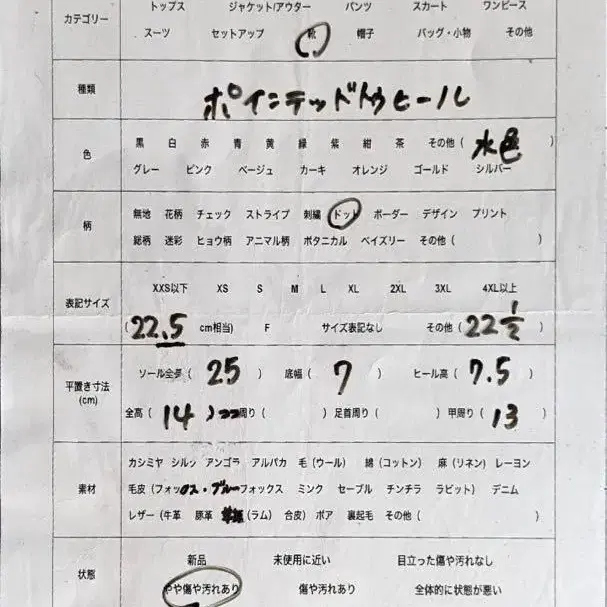 トップス ジャケット/アウター パンツ スカート ワンピース
カテゴリー
スーツ セットアップ 靴 帽子 バッグ・小物 その他
種類 ポインテッドトゥヒール
黒 白 赤 青 黄 緑 紫 紺 茶 その他( 水色 )
色
グレー ピンク ベージュ カーキ オレンジ ゴールド シルバー
無地 花柄 チェック ストライプ 刺繍 ドット ボーダー デザイン プリント
柄
総柄 迷彩 ヒョウ柄 アニマル柄 ボタニカル ペイズリー その他( )
XXS以下 XS S M L XL 2XL 3XL 4XL以上
表記サイズ
( 22.5 cm相当) F サイズ表記なし その他( 22 1/2 )
ソール全長( 25 ) 底幅( 7 ) ヒール高( 7.5 )
平置き寸法
(cm)
全高( 14 ) 周り( ) 足首周り( ) 甲周り( 13 )
カシミヤ シルク アンゴラ アルパカ 毛(ウール) 綿(コットン) 麻(リネン) レーヨン
素材
毛皮(フォックス・ブルーフォックス ミンク セーブル チンチラ ラビット) デニム
レザー(牛革 豚革 (ラム) 合皮) ボア 裏起毛 その他( )
新品 未使用に近い 目立った傷や汚れなし
状態
やや傷や汚れあり 傷や汚れあり 全体的に状態が悪い